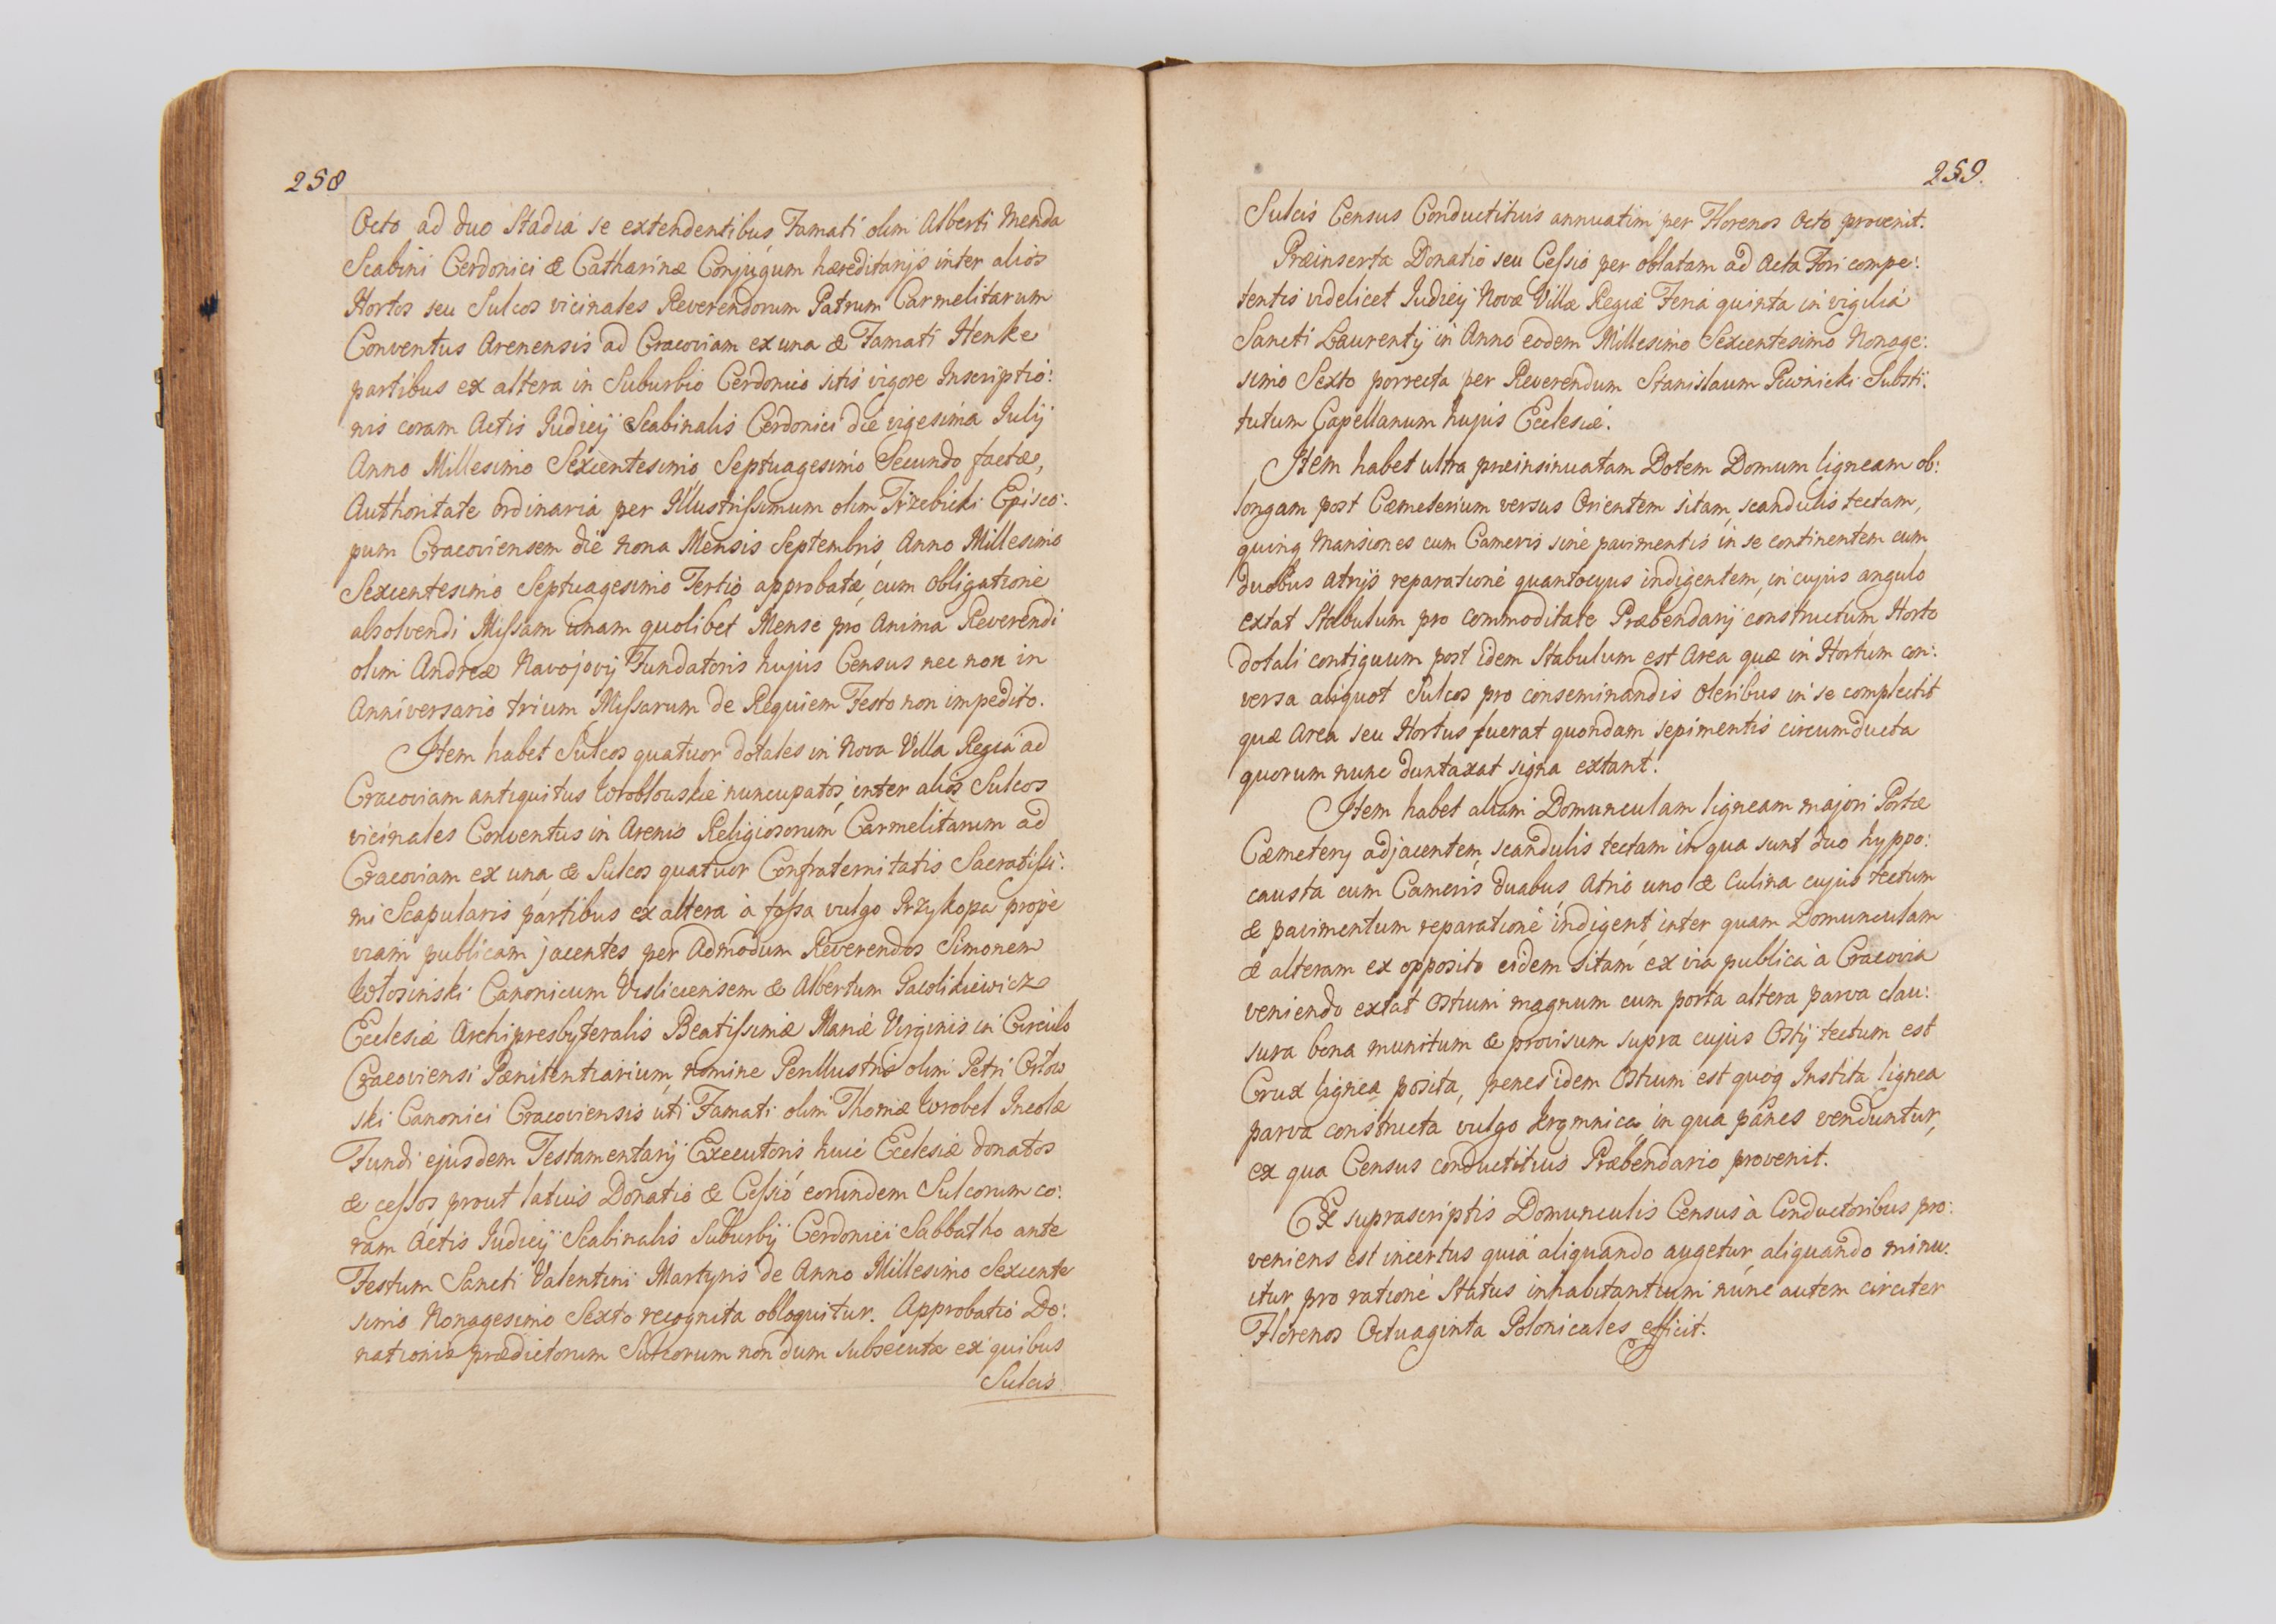 258
Octo ad duo Stadia se extendentibus Famati olim Alberti Menda
Scabini Cerdonici & Catharinæ Conjugum hæreditarijs inter alios
Hortos seu Sulcos vicinales Reverendorum Patrum Carmelitarum
Conventus Arenensis ad Cracoviam ex una & Famati Henke
partibus ex altera in Suburbio Cerdonico sitis vigore Inscriptio:
nis coram Actis Judicij Scabinalis Cerdonici die vigesima Julij
Anno Millesimo Sexcentesimo Septuagesimo Secundo factæ,
Authoritate ordinaria per Illustrissimum olim Trzebicki Episco:
pum Cracoviensem die nona Mensis Septembris Anno Millesimo
Sexcentesimo Septuagesimo Tertio approbatæ, cum obligatione
absolvendi Missam unam quolibet Mense pro Anima Reverendi
olim Andreæ Navojovij Fundatoris hujus Census nec non in
Anniversario trium Missarum de Requiem Festo non impedito.
Item habet Sulcos quatuor dotales in Nova Villa Regia ad
Cracoviam antiquitus Wroblowskie nuncupatos, inter alios Sulcos
vicinales Conventus in Arenis Religiosorum Carmelitarum ad
Cracoviam ex una & Sulcos quatuor Confraternitatis Sacratissi:
mi Scapularis partibus ex altera à fossa vulgo Przykopa prope
viam publicam jacentes per Admodum Reverendos Simonem
Wlosinski Canonicum Visliciensem & Albertum Pacolikiewicz
Ecclesiæ Archipresbyteralis Beatissimæ Mariæ Virginis in Circulo
Cracoviensi Pænitentiarium, nomine Perillustris olim Petri Orlow
ski Canonici Cracoviensis uti Famati olim Thomæ Wrobel Incolæ
Fundi ejusdem Testamentarij Executoris huic Ecclesiæ donatos
& cessos prout latius Donatio & Cessio eorundem Sulcorum co:
ram Actis Judicij Scabinalis Suburbij Cerdonici Sabbatho ante
Festum Sancti Valentini Martyris de Anno Millesimo Sexcente
simo Nonagesimo Sexto recognita obloquitur. Approbatio Do:
nationis prædictorum Sulcorum non dum subsecuta ex quibus
Sulcis
259.
Sulcis Census Conductitius annuatim per Florenos Octo provenit.
Præinserta Donatio seu Cessio per oblatam ad Acta Fori compe:
tentis videlicet Judicij Novæ Villæ Regiæ Feria quinta in vigilia
Sancti Laurentij in Anno eodem Millesimo Sexcentesimo Nonage:
simo Sexto porrecta per Reverendum Stanislaum Piwnicki Substi:
tutum Capellanum hujus Ecclesiæ.
Item habet ultra preinsinuatam Dotem Domum ligneam ob:
longam post Cæmeterium versus Orientem sitam, scandulis tectam,
quinq Mansiones cum Cameris sine pavimentis in se continentem cum
duobus Atrijs reparatione quantocyus indigentem, in cujus angulo
extat Stabulum pro commoditate Præbendarij constructum Horto
dotali contiguum post idem Stabulum est Area quæ in Hortum con:
versa aliquot Sulcos pro conseminandis Oleribus in se complectit
quæ Area seu Hortus fuerat quondam sepimentis circumducta
quorum nunc duntaxat signa extant.
Item habet aliam Domunculam ligneam majori Portæ
Cæmeterij adjacentem, scandulis tectam in qua sunt duo hyppo:
causta cum Cameris duabus, Atrio uno & Culina cujus tectum
& pavimentum reparatione indigent, inter quam Domunculam
& alteram ex opposito eidem sitam, ex via publica à Cracovia
veniendo extat Ostium magnum cum porta altera parva clau:
sura bona munitum & provisum supra cujus Ostij tectum est
Crux lignea posita, penes idem Ostium est quoq Instita lignea
parva constructa vulgo kromnica, in qua panes venduntur,
ex qua Census conductitius Præbendario provenit.
Ex suprascriptis Domunculis Census à Conductoribus pro:
veniens est incertus quia aliquando augetur, aliquando minu:
itur pro ratione Status inhabitantium nunc autem circiter
Florenos Octuaginta Polonicales efficit.